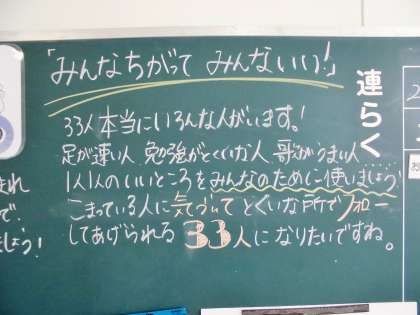 「みんなちがって みんないい!」
33人本当にいろんな人がいます。!
足が速い人 勉強がとくいな人 歌がうまい人....
1人1人のいいところをみんなのために使いましょう
こまっている人に気づいてとくいな所でフォロー
してあげられる 33人になりたいですね。
連らく